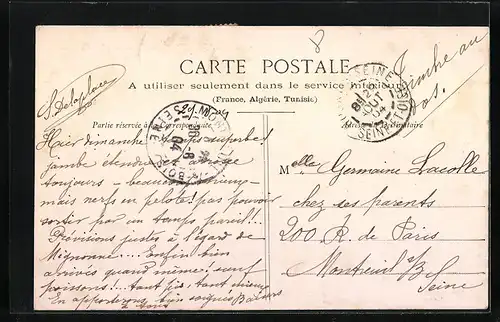 8
CARTE POSTALE
A utiliser seulement dans le service intérieur
(France, Algérie, Tunisie)
Timbre au
dos.
S. Delaplace
Partie réservée à la correspondance
Adresse du destinataire
SEINE
Hier dimanche temps superbe!
jambe étendue
toujours — beaucoup mieux —
mais nerfs en pelote! pas pouvoir
sortir par un temps pareil!..
Prévisions justes à l'égard de
Mignonne.... Enfin bien
arrivés quand même! neuf
poissons!... tant pis, tant mieux
En apporterons, bien soignés Baisers
à tous
Melle Germaine Lacolle
chez les parents
200 R. de Paris
Montreuil s/B
Seine